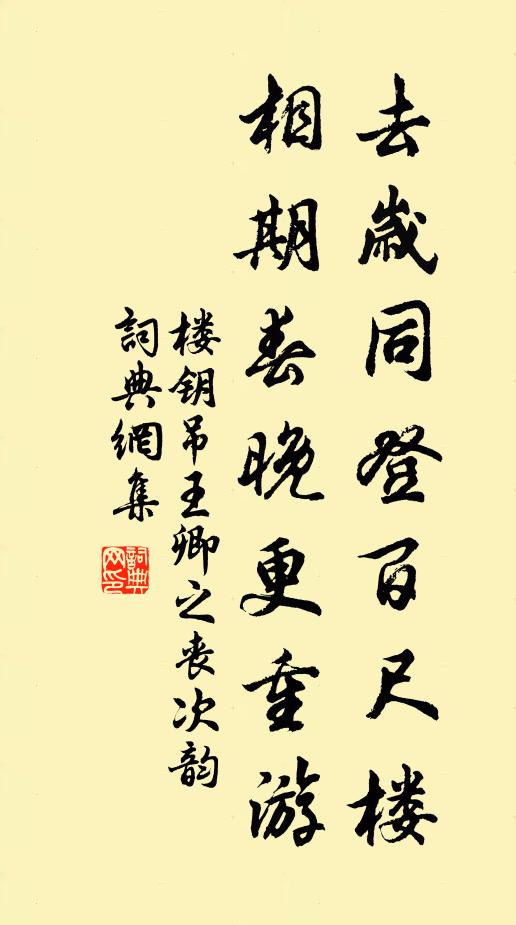 去歲同登百尺楼
相期春晚更重游
楼钥吊王卿之丧次韵
詞典網集
詞典网印